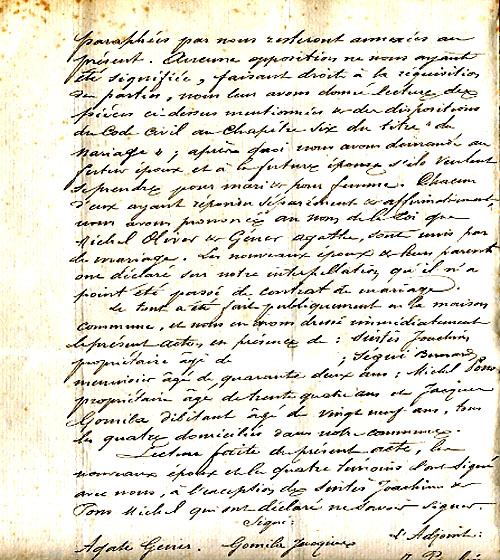 paraphées par nous resteront annexées au
présent. Aucune opposition ne nous ayant
été signifiée, faisant droit à la réquisition
des parties, nous leur avons donné lecture des
pièces ci-dessus mentionnées et des dispositions
du Code Civil au Chapitre six du titre "du
Mariage"; après quoi nous avons demandé au
futur époux et à la future épouse s'ils veulent
se prendre pour mari et pour femme. Chacun
d'eux ayant répondu séparément et affirmativement,
nous avons prononcé au nom de la Loi que
Michel Oliver et Gener Agathe, sont unis par
le mariage. Les nouveaux époux et leurs parents
ont déclaré sur notre interpellation, qu'il n'a
point été passé de contrat de mariage.
Le tout a été fait publiquement en la maison
commune, et nous en avons dressé immédiatement
le présent acte, en présence de: Sintès Joachim
propriétaire âgé de ; Séqui Bernard
menuisier âgé de quarante deux ans; Michel Pons
propriétaire âgé de trente quatre ans et Jacques
Gomila débitant âgé de vingt neuf ans, tous
les quatre domiciliés dans notre commune.
Lecture faite du présent acte, les
nouveaux époux et les quatre témoins l'ont signé
avec nous, à l'exception des Sintès Joachim et
Pons Michel qui ont déclaré ne savoir signer.
Signé:
Agate Gener. Gomila Jacques L'Adjoint: